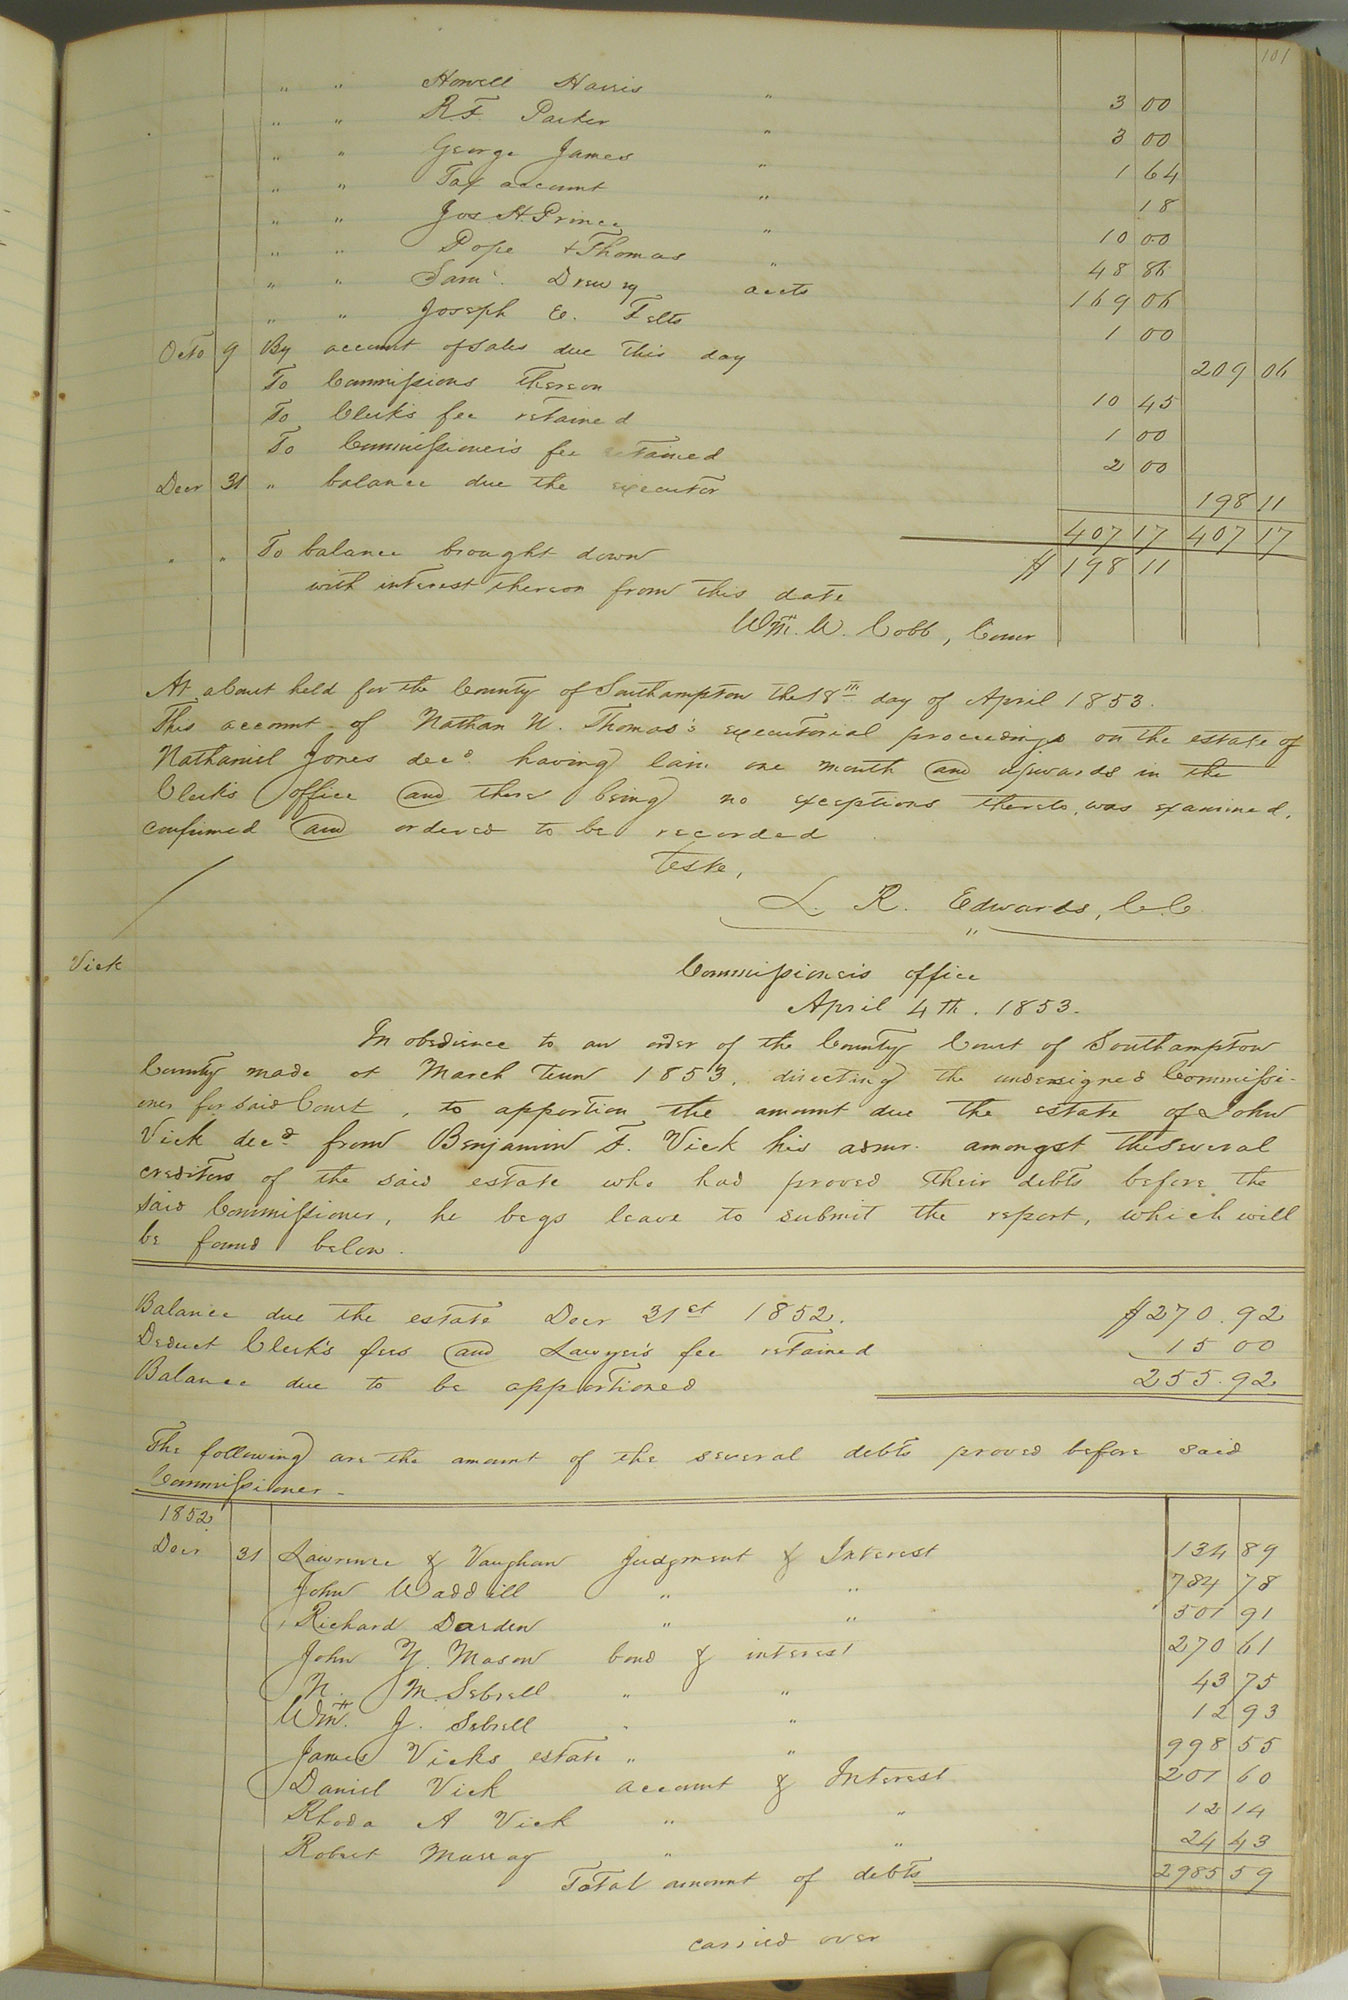 101
" " Howell Harris " 3 00
" " R. F. Parker " 3 00
" " George James " 1 64
" " Tax account " 18
" " Jos H. Prince " 10 00
" " Pope & Thomas " 48 86
" " Saml. Drewry accts 169 06
" " Joseph E. Felts 1 00
Octo 9 By account of Sales due this day 209 06
To Commissions thereon 10 45
To Clerk's fee retained 1 00
To Commissioner's fee retained 2 00
Decr 31 " balance due the executor 198 11
407 17 407 17
" " To balance brought down $ 198 11
with interest thereon from this date
Wm. W. Cobb, Comr
At a Court held for the County of Southampton the 18th day of April 1853.
This account of Nathan W. Thomas's executorial proceedings on the estate of
Nathaniel Jones decd. having lain one month and upwards in the
Clerks office and there being no exceptions thereto, was examined,
confirmed and ordered to be recorded
Teste,
L. R. Edwards, C. C.
Vick
Commissioners office
April 4th. 1853.
In obedience to an order of the County Court of Southampton
County made at March term 1853, directing the undersigned Commissi-
oner for said Court, to apportion the amount due the estate of John
Vick decd from Benjamin F. Vick his admr. amongst the several
creditors of the said estate who had proved their debts before the
said Commissioner, he begs leave to submit the report, which will
be found below.
Balance due the estate Decr 31st 1852. $270.92
Deduct Clerk's fees and Lawyer's fee retained 15 00
Balance due to be apportioned 255.92
The following are the amount of the several debts proved before said
Commissioner -
1852
Decr 31 Lawrence & Vaughan Judgment & Interest 134 89
John Waddill " " 784 78
Richard Darden " " 501 91
John Y. Mason bond & interest 270 61
N. M. Sebrell " " 43 75
Wm. J. Sebrell " " 12 93
James Vicks estate " " 998 55
Daniel Vick account & Interest 201 60
Rhoda A Vick " " 12 14
Robert Murray " " 24 43
Total amount of debts 2985 59
carried over